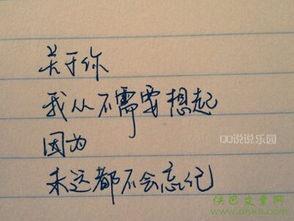 关于你
我从不需要想起
QQ说说乐园
因为
永远都不会忘记